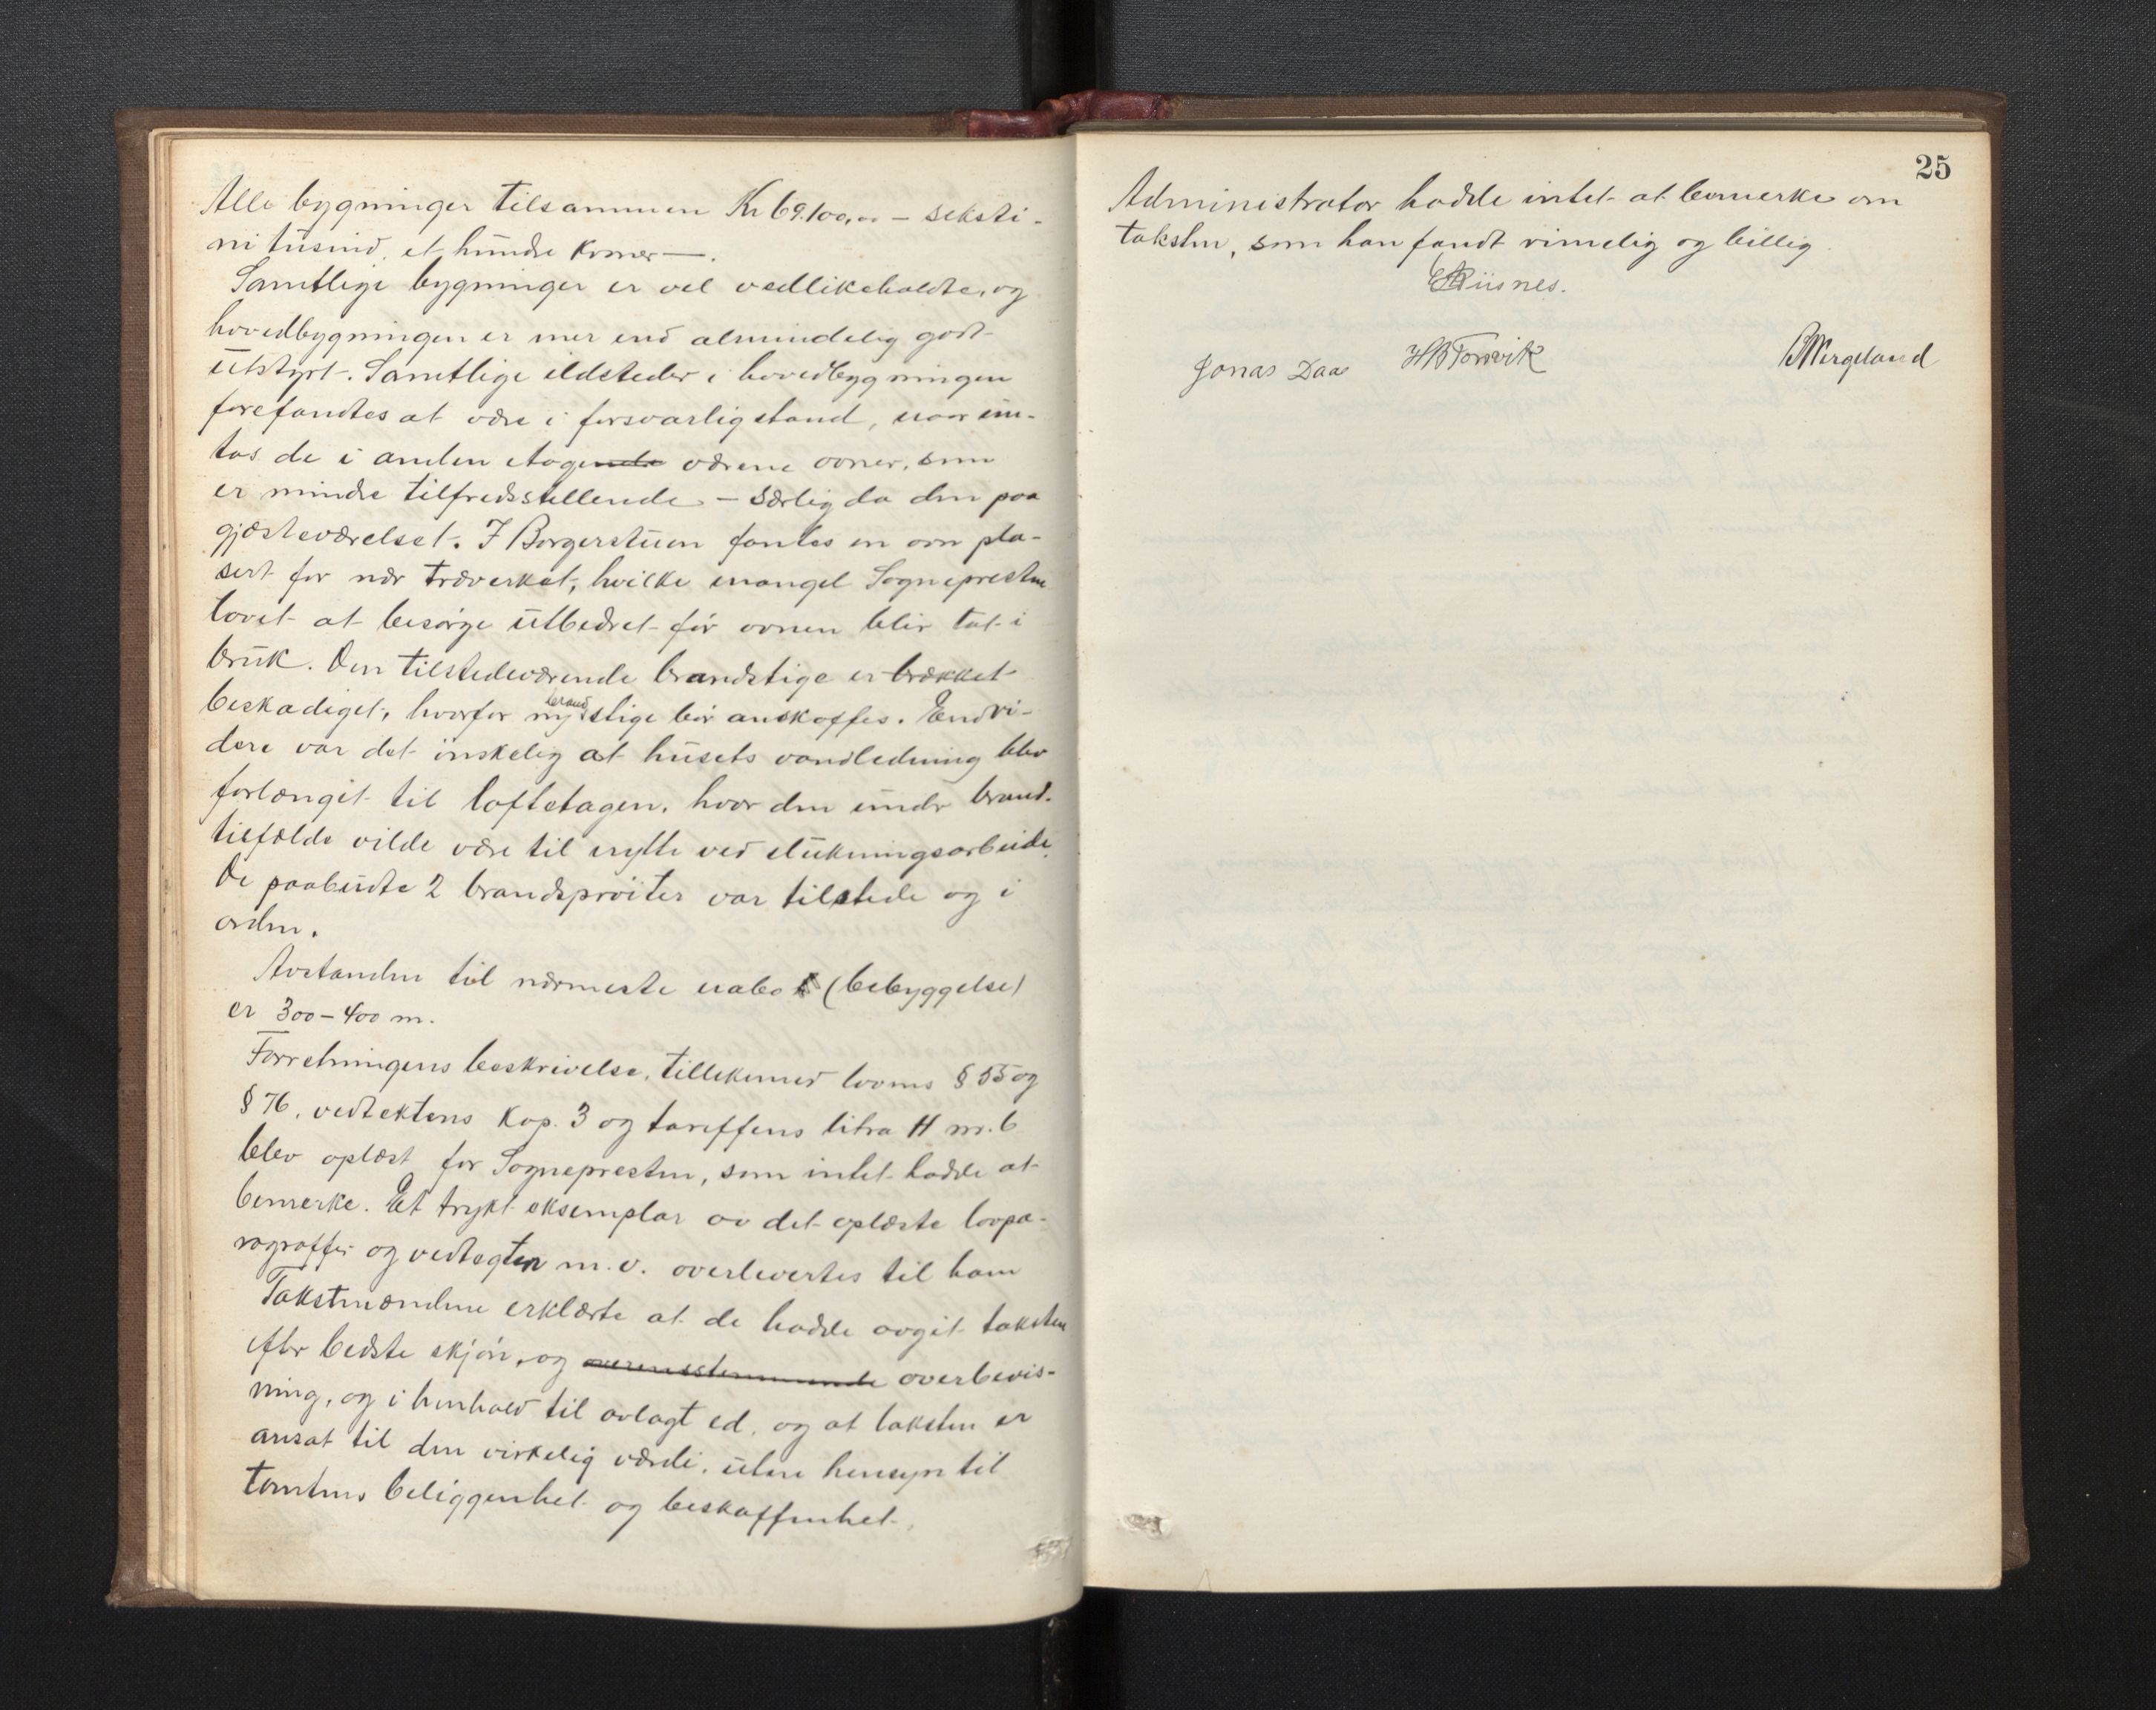 Alle bygninger tilsammen Kr 69.100,00 – seksti-
ni tusind, et hundre kroner —.
Samtlige bygninger er vel vedlikeholdte, og
hovedbygningen er mer end almindelig godt
utstyrt. Samtlige ildsteder i hovedbygningen
forefandtes at være i forsvarlig stand, naar un-
tas de i anden etage værene ovner, som
er mindre tilfredsstellende – særlig da den paa
gjæsteværelset. I Borgerstuen fantes en ovn pla-
sert for nær træverket, hvilke mangel Sognepresten
lovet at besørge utbedret før ovnen blir tat i
bruk. Den tilstedeværende brandstige er brækket
beskadiget, hvorfor ny brandstige bør anskaffes. Endvi-
dere var det ønskelig at husets vandledning blev
forlænget til loftetagen, hvor den under brand-
tilfælde vilde være til nytte ved slukningsarbeide.
De paabudte 2 brandsprøiter var tilstede og i
orden.
Avstanden til nærmeste nabo (bebyggelse)
er 300–400 m.
Forretningens beskrivelse, tillikemed lovens § 55 og
§ 76, vedtektens Kap. 3 og tariffens litra H nr. 6
blev oplæst for Sognepresten, som intet hadde at
bemerke. Et trykt eksemplar av det oplæste lovpa-
ragraffer og vedtægter m.v. overlevertes til ham
Takstmændene erklærte at de hadde avgit taksten
efter bedste skjøn, og overensstemmende overbevis-
ning, og i henhold til avlagt ed, og at taksten er
ansat til den virkelig værdi, uten hensyn til
tomtens beliggenhet og beskaffenhet.
25
Administrator hadde intet at bemerke om
taksten, som han fandt rimelig og billig.
Riisnes.
Jonas Daae HB Torsvik B Wergeland